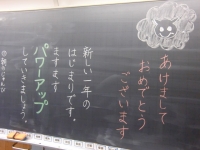 あけまして
おめでとう
ございます
新しい一年の
はじまりです。
ますます
パワーアップ
していきましょう。